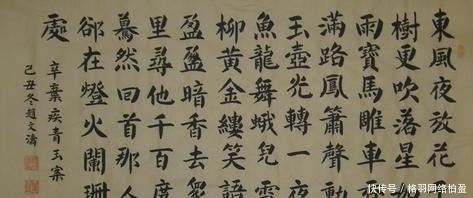 東風夜放花
樹更吹落星
雨寶馬雕車
滿路鳳簫聲動
玉壺光轉一夜
魚龍舞蛾兒雪
柳黃金縷笑語
盈盈暗香去眾
里尋他千百度
驀然回首那人
郤在燈火闌珊
處
辛棄疾青玉案
己丑冬趙文濤
快传号 / 格羽网络怕盈